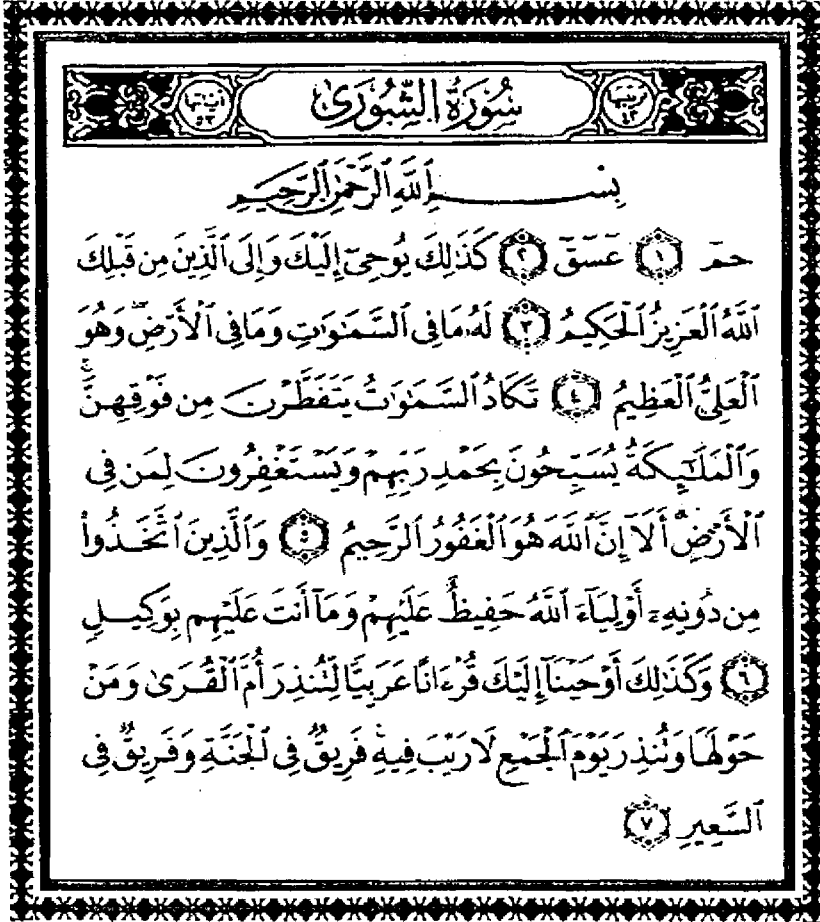 ترتيبها ٤٢ سُورَةُ الشُّورَىٰ آياتها ٥٣
بِسْمِ ٱللَّهِ ٱلرَّحْمَٰنِ ٱلرَّحِيمِ
حمٓ ١ عٓسٓقٓ ٢ كَذَٰلِكَ يُوحِىٓ إِلَيْكَ وَإِلَى ٱلَّذِينَ مِن قَبْلِكَ
ٱللَّهُ ٱلْعَزِيزُ ٱلْحَكِيمُ ٣ لَهُۥ مَا فِى ٱلسَّمَٰوَٰتِ وَمَا فِى ٱلْأَرْضِۖ وَهُوَ
ٱلْعَلِىُّ ٱلْعَظِيمُ ٤ تَكَادُ ٱلسَّمَٰوَٰتُ يَتَفَطَّرْنَ مِن فَوْقِهِنَّۚ
وَٱلْمَلَٰٓئِكَةُ يُسَبِّحُونَ بِحَمْدِ رَبِّهِمْ وَيَسْتَغْفِرُونَ لِمَن فِى
ٱلْأَرْضِۗ أَلَآ إِنَّ ٱللَّهَ هُوَ ٱلْغَفُورُ ٱلرَّحِيمُ ٥ وَٱلَّذِينَ ٱتَّخَذُوا۟
مِن دُونِهِۦٓ أَوْلِيَآءَ ٱللَّهُ حَفِيظٌ عَلَيْهِمْ وَمَآ أَنتَ عَلَيْهِم بِوَكِيلٍ
٦ وَكَذَٰلِكَ أَوْحَيْنَآ إِلَيْكَ قُرْءَانًا عَرَبِيًّا لِّتُنذِرَ أُمَّ ٱلْقُرَىٰ وَمَنْ
حَوْلَهَا وَتُنذِرَ يَوْمَ ٱلْجَمْعِ لَا رَيْبَ فِيهِۚ فَرِيقٌ فِى ٱلْجَنَّةِ وَفَرِيقٌ فِى
ٱلسَّعِيرِ ٧